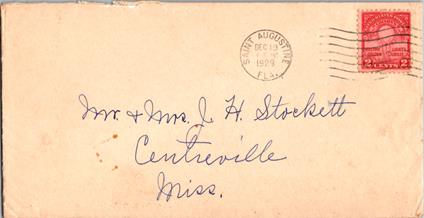 SAINT AUGUSTINE
DEC 19
1929
FLA.
2 CENTS 2
Mr. & Mrs. J. H. Stockett
Centreville
Miss.